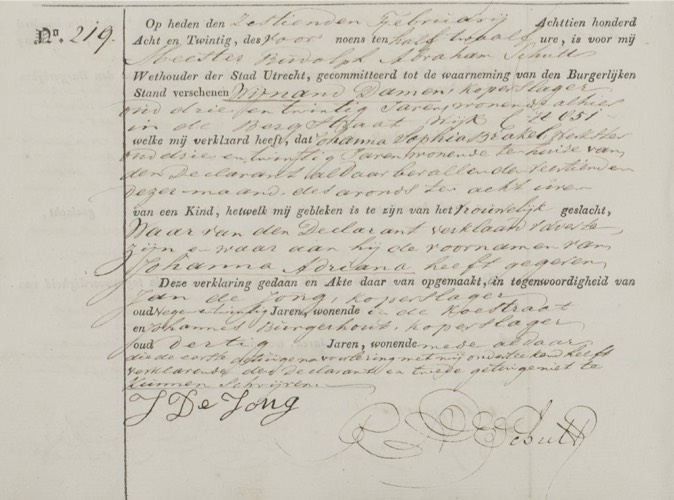 No. 219.
Op heden den Zestienden Februarij Achttien honderd
Acht en Twintig, des voor noens ten half twaalf ure, is voor mij
Meester Rudolph Abraham Schutt
Wethouder der Stad Utrecht, gecommitteerd tot de waarneming van den Burgerlijken
Stand verschenen Wijnand Damen, koperslager
oud drie en twintig Jaren, wonende alhier
in de Bergstraat Wijk
welke mij verklaard heeft, dat Johanna Sophia Brakel
oud drie en twintig Jaren wonende ten huize van
den Declarant aldaar bevallen den veertienden
dezer maand des avonds te acht uren
van een Kind, hetwelk mij gebleken is te zijn van het vrouwelijk geslacht,
Waar van den Declarant verklaart vader te
zijn en waar aan hij de voornamen van
Johanna Adriana heeft gegeven
Deze verklaring gedaan en Akte daar van opgemaakt, in tegenwoordigheid van
Jan de Jong, koperslager
oud Jaren, wonende in de Koestraat
en Johannes Burgerhout, koperslager
oud dertig Jaren, wonende mede aldaar
die de eerste getuige na voorlezing met mij onderteekend heeft
verklarende den Declarant en tweede getuige niet te
kunnen Schrijven
J De Jong
R A Schutt